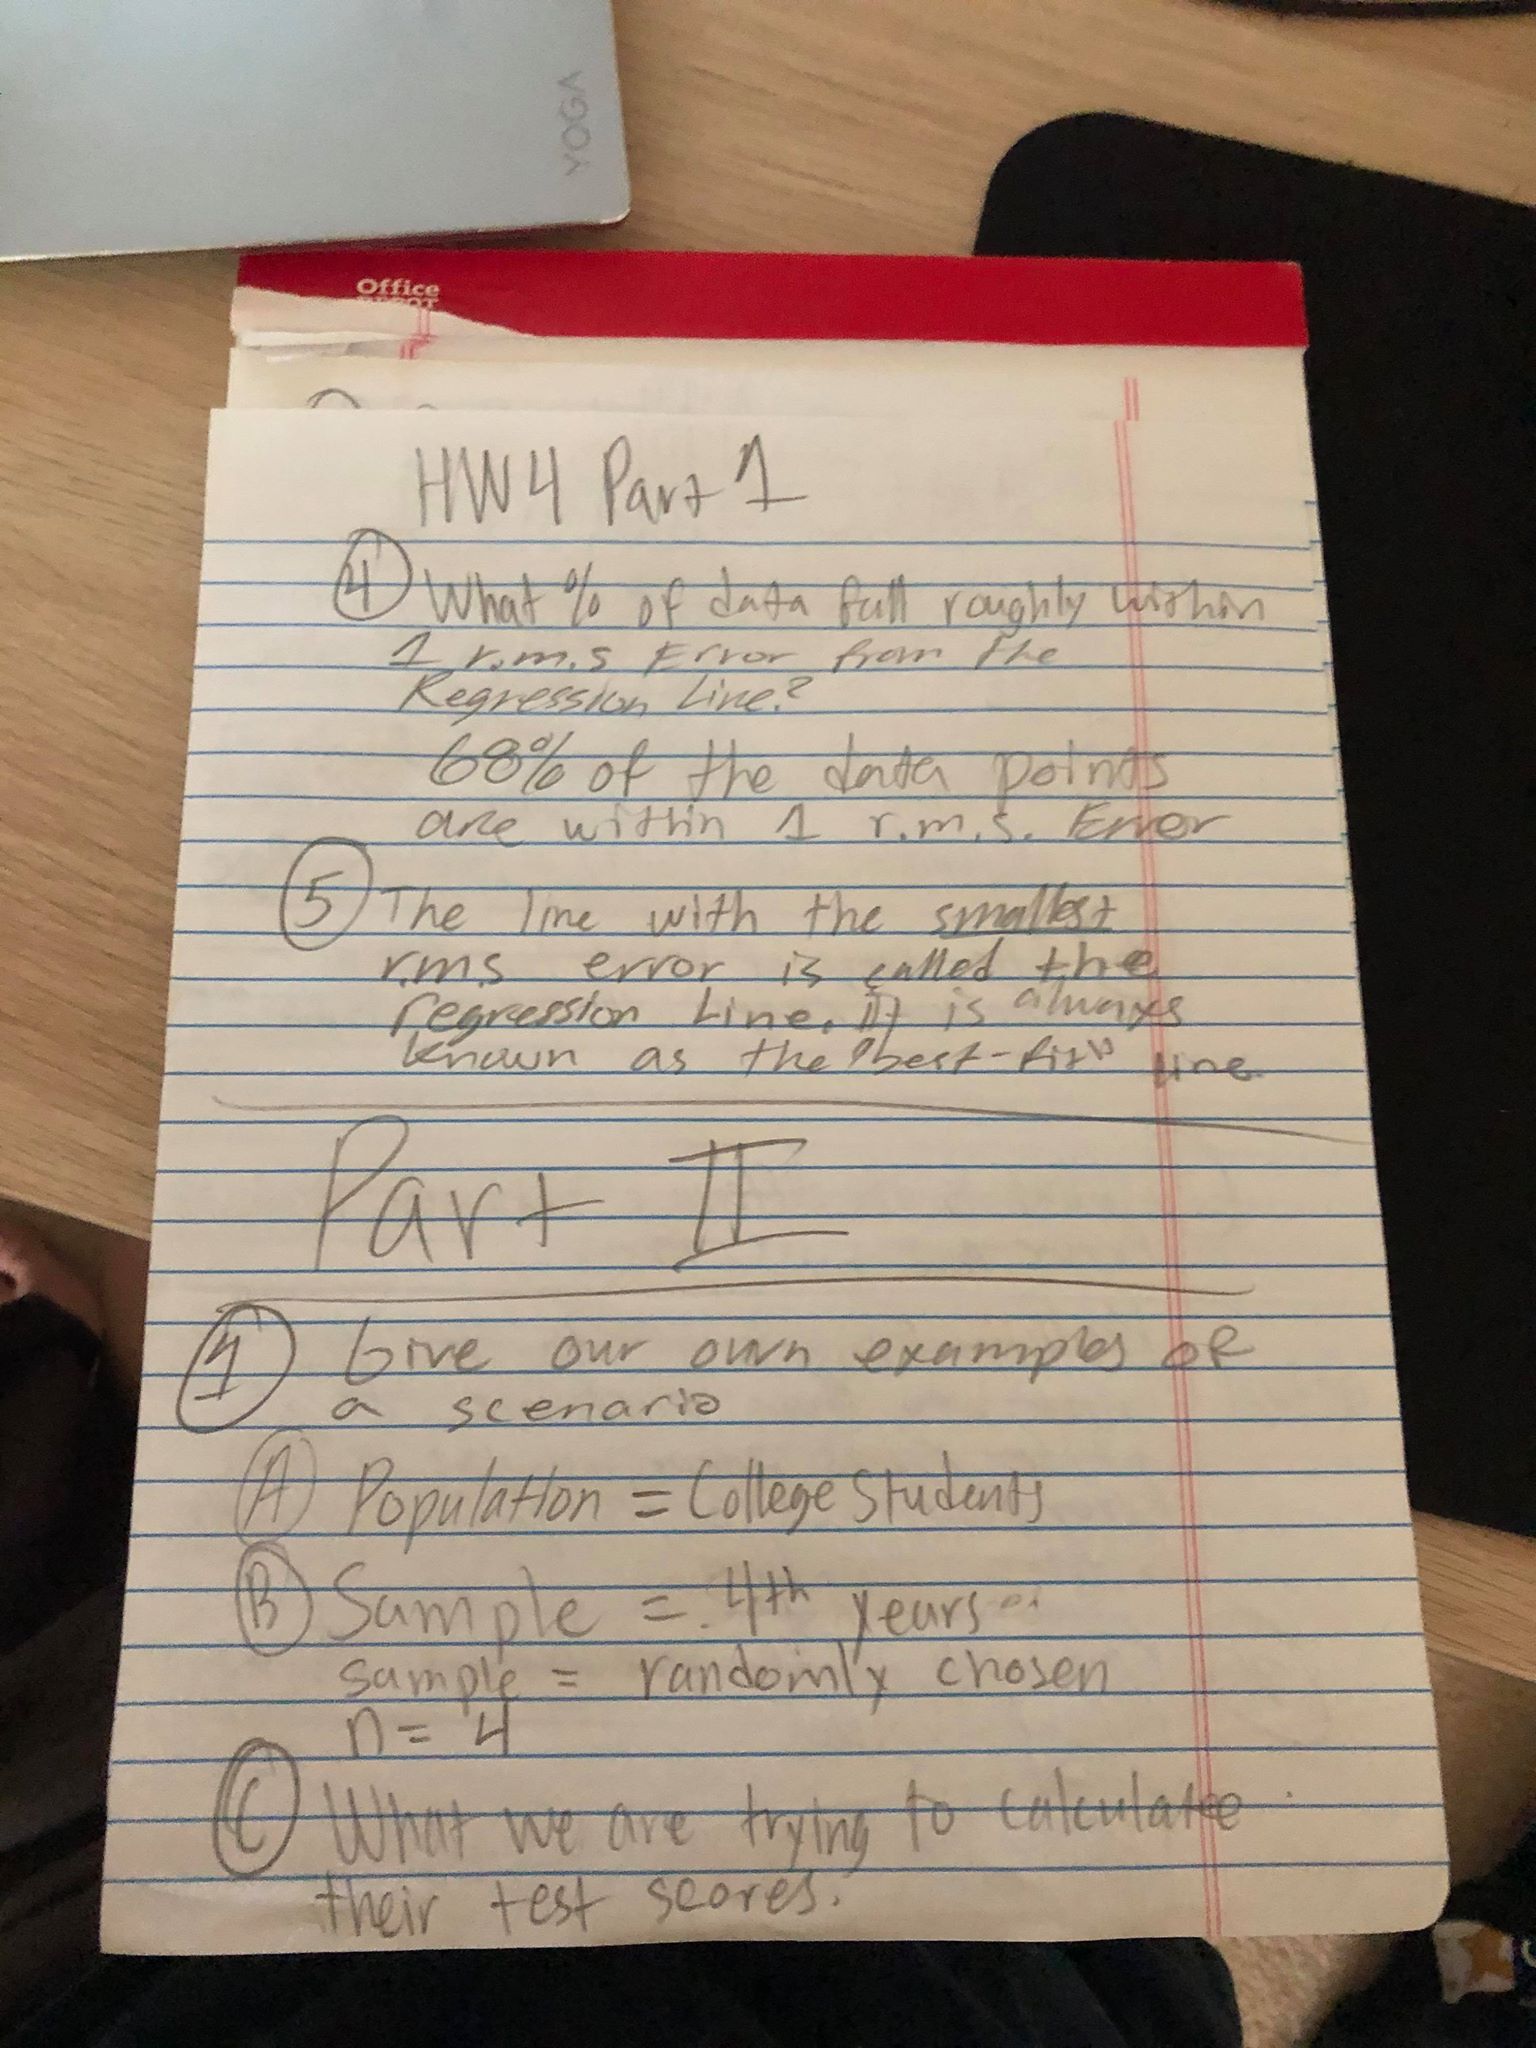 YOGA
Office
DEPOT
HW4 Part 1
4 What % of data fall roughly within
1 r.m.s Error from the
Regression Line?
68% of the data points
are within 1 r.m.s. Error
5 The line with the smallest
r.m.s error is called the
regression Line. It is always
known as the "best-fit" line
Part II
1 Give our own examples of
a scenario
A Population = College Students
B Sample = 4th years
sample = randomly chosen
n = 4
C What we are trying to calculate
their test scores.